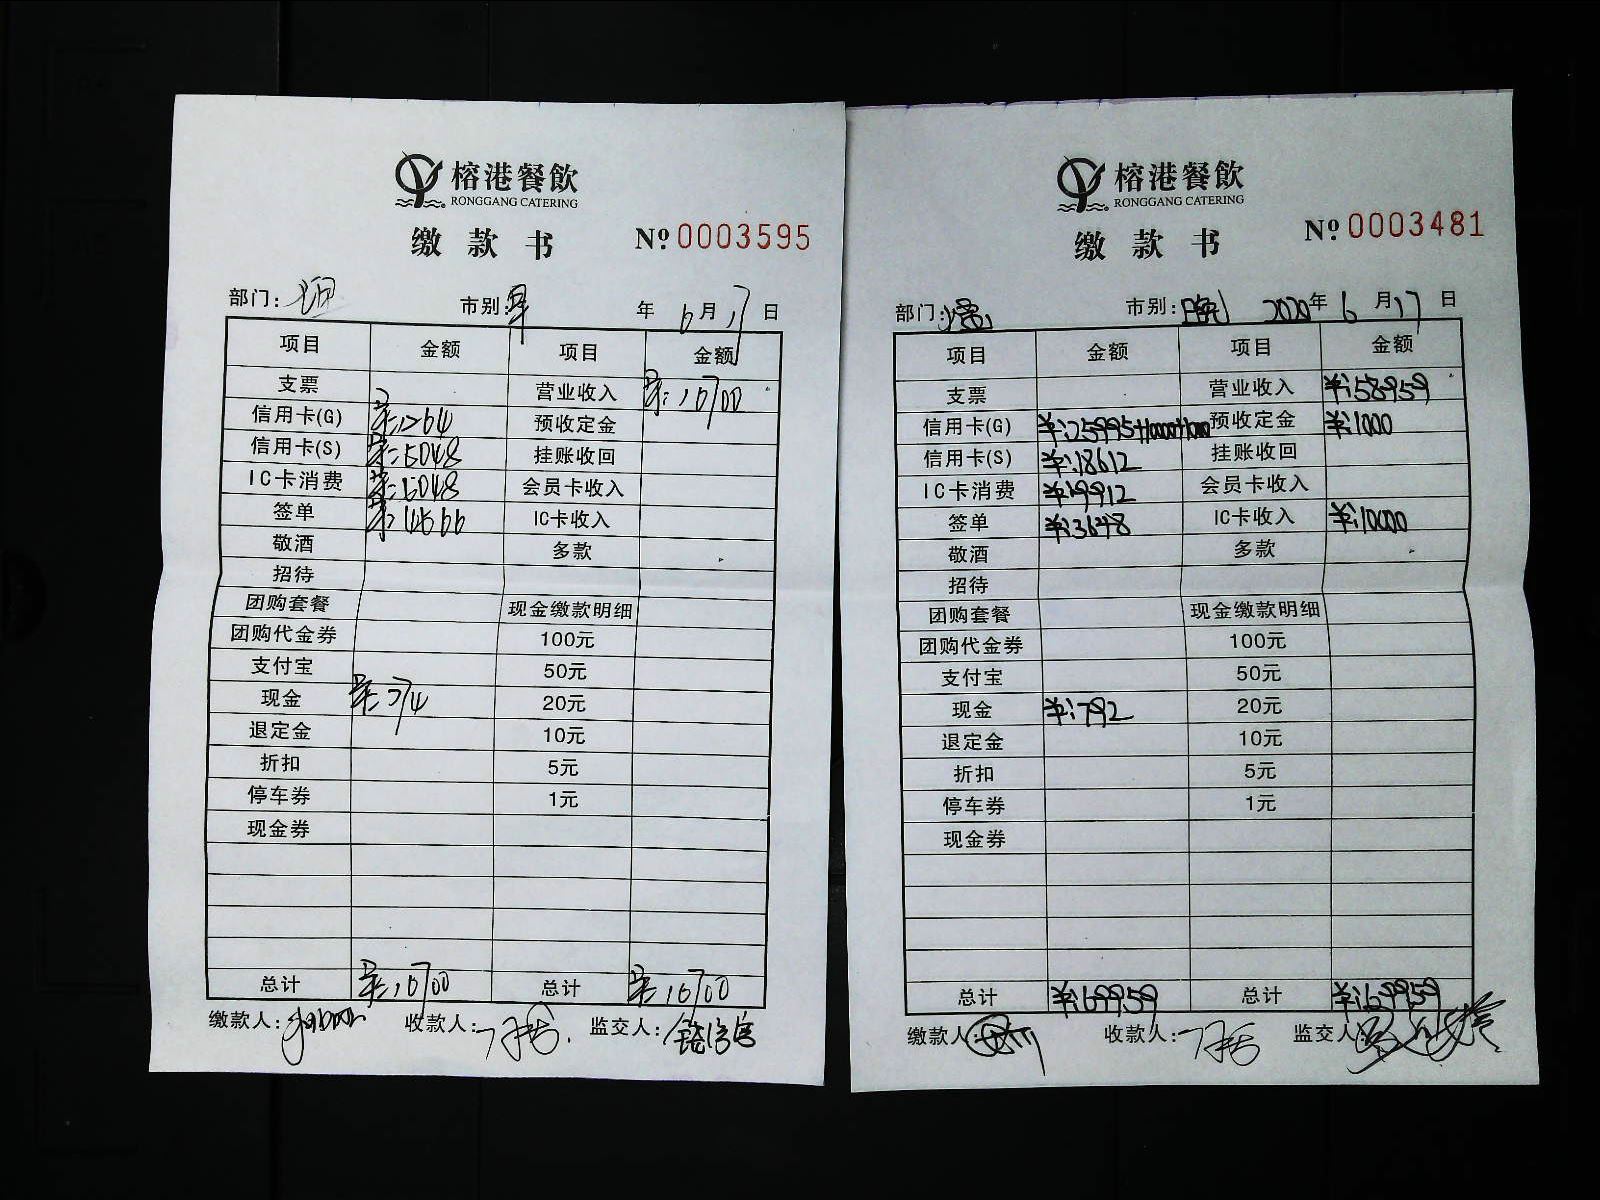 榕港餐飲
RONGGANG CATERING
缴款书 № 0003595
部门: 市别:早 年 6月17日
项目 金额 项目 金额
支票 营业收入 ¥:16700
信用卡(G) ¥:1264 预收定金
信用卡(S) ¥:5048 挂账收回
IC卡消费 ¥:5048 会员卡收入
签单 ¥:4566 IC卡收入
敬酒 多款
招待
团购套餐 现金缴款明细
团购代金券 100元
支付宝 50元
现金 ¥:774 20元
退定金 10元
折扣 5元
停车券 1元
现金券
总计 ¥:16700 总计 ¥:16700
缴款人: 收款人: 监交人:
榕港餐飲
RONGGANG CATERING
缴款书 № 0003481
部门: 市别:晚 2020年6月17日
项目 金额 项目 金额
支票 营业收入 ¥:58959
信用卡(G) ¥:25995+10000+1000 预收定金 ¥:1000
信用卡(S) ¥:18612 挂账收回
IC卡消费 ¥:9912 会员卡收入
签单 ¥:3648 IC卡收入 ¥:10000
敬酒 多款
招待
团购套餐 现金缴款明细
团购代金券 100元
支付宝 50元
现金 ¥:792 20元
退定金 10元
折扣 5元
停车券 1元
现金券
总计 ¥:69959 总计 ¥:69959
缴款人: 收款人: 监交人: